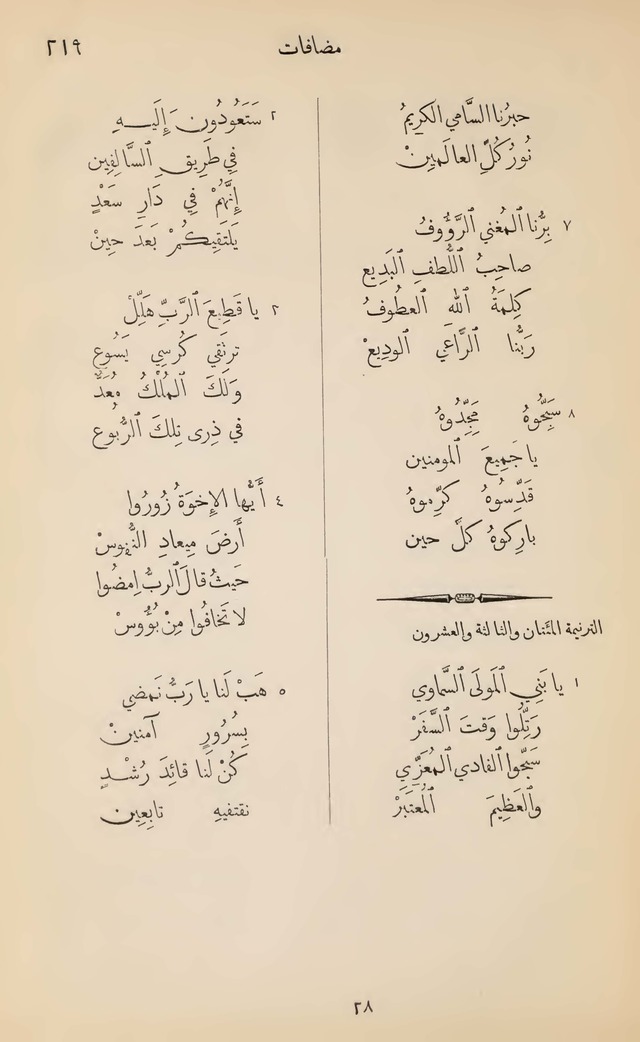 مضافات ٢١٩
حبرُنا السَّامي الكريمُ
نُورُ كُلِّ العالَمِينْ
٧ بِرُّنا ٱلمُغني ٱلرَّؤُوفُ
صاحِبُ ٱللُّطفِ ٱلبَدِيع
كِلمَةُ ٱلله ٱلعطُوفُ
رَبُّنا ٱلرَّاعَي ٱلودِيعْ
٨ سَبِّحُوهُ مَجِّدُوهُ
يا جَمِيعَ ٱلمومنين
قَدِّسُوهُ كَرِّموهُ
بارِكوهُ كلَّ حين
الترنيمة المئتنان والثالثة والعشرون
١ يا بَنِي ٱلمَولَى ٱلسَّماوي
رَتِّلُوا وَقتَ ٱلسَّفَرْ
سَبِّحُوا ٱلفادي ٱلمُعَزّي
والعَظِيمَ ٱلمُعتَبَرْ
٢ سَتَعُودُونَ إِلَيهِ
فِي طَرِيقِ ٱلسَّالِفِين
إِنَّهُمْ فِي دَارِ سَعْدٍ
يَلتَقِيكُمْ بَعدَ حِينْ
٣ يا قَطِيعَ ٱلرَّبِّ هَلِّلْ
ترتَقي كُرسِي يَسُوع
وَلَكَ ٱلمُلْكُ مُعَدٌّ
في ذِرى تِلكَ ٱلرُّبُوع
٤ أَيُّها الإِخوَةُ زُورُوا
أَرضَ مِيعادِ النُّفوسْ
حَيثُ قالَ ٱلربُّ اِمضُوا
لا تَخافُوا مِنْ بُؤُوسْ
٥ هَبْ لَنا يا رَبُّ نَمضي
بِسُرُورٍ آمنينْ
كُنْ لَنا قائِدَ رُشْدٍ
نقتفيهِ تابِعِين
٢٨